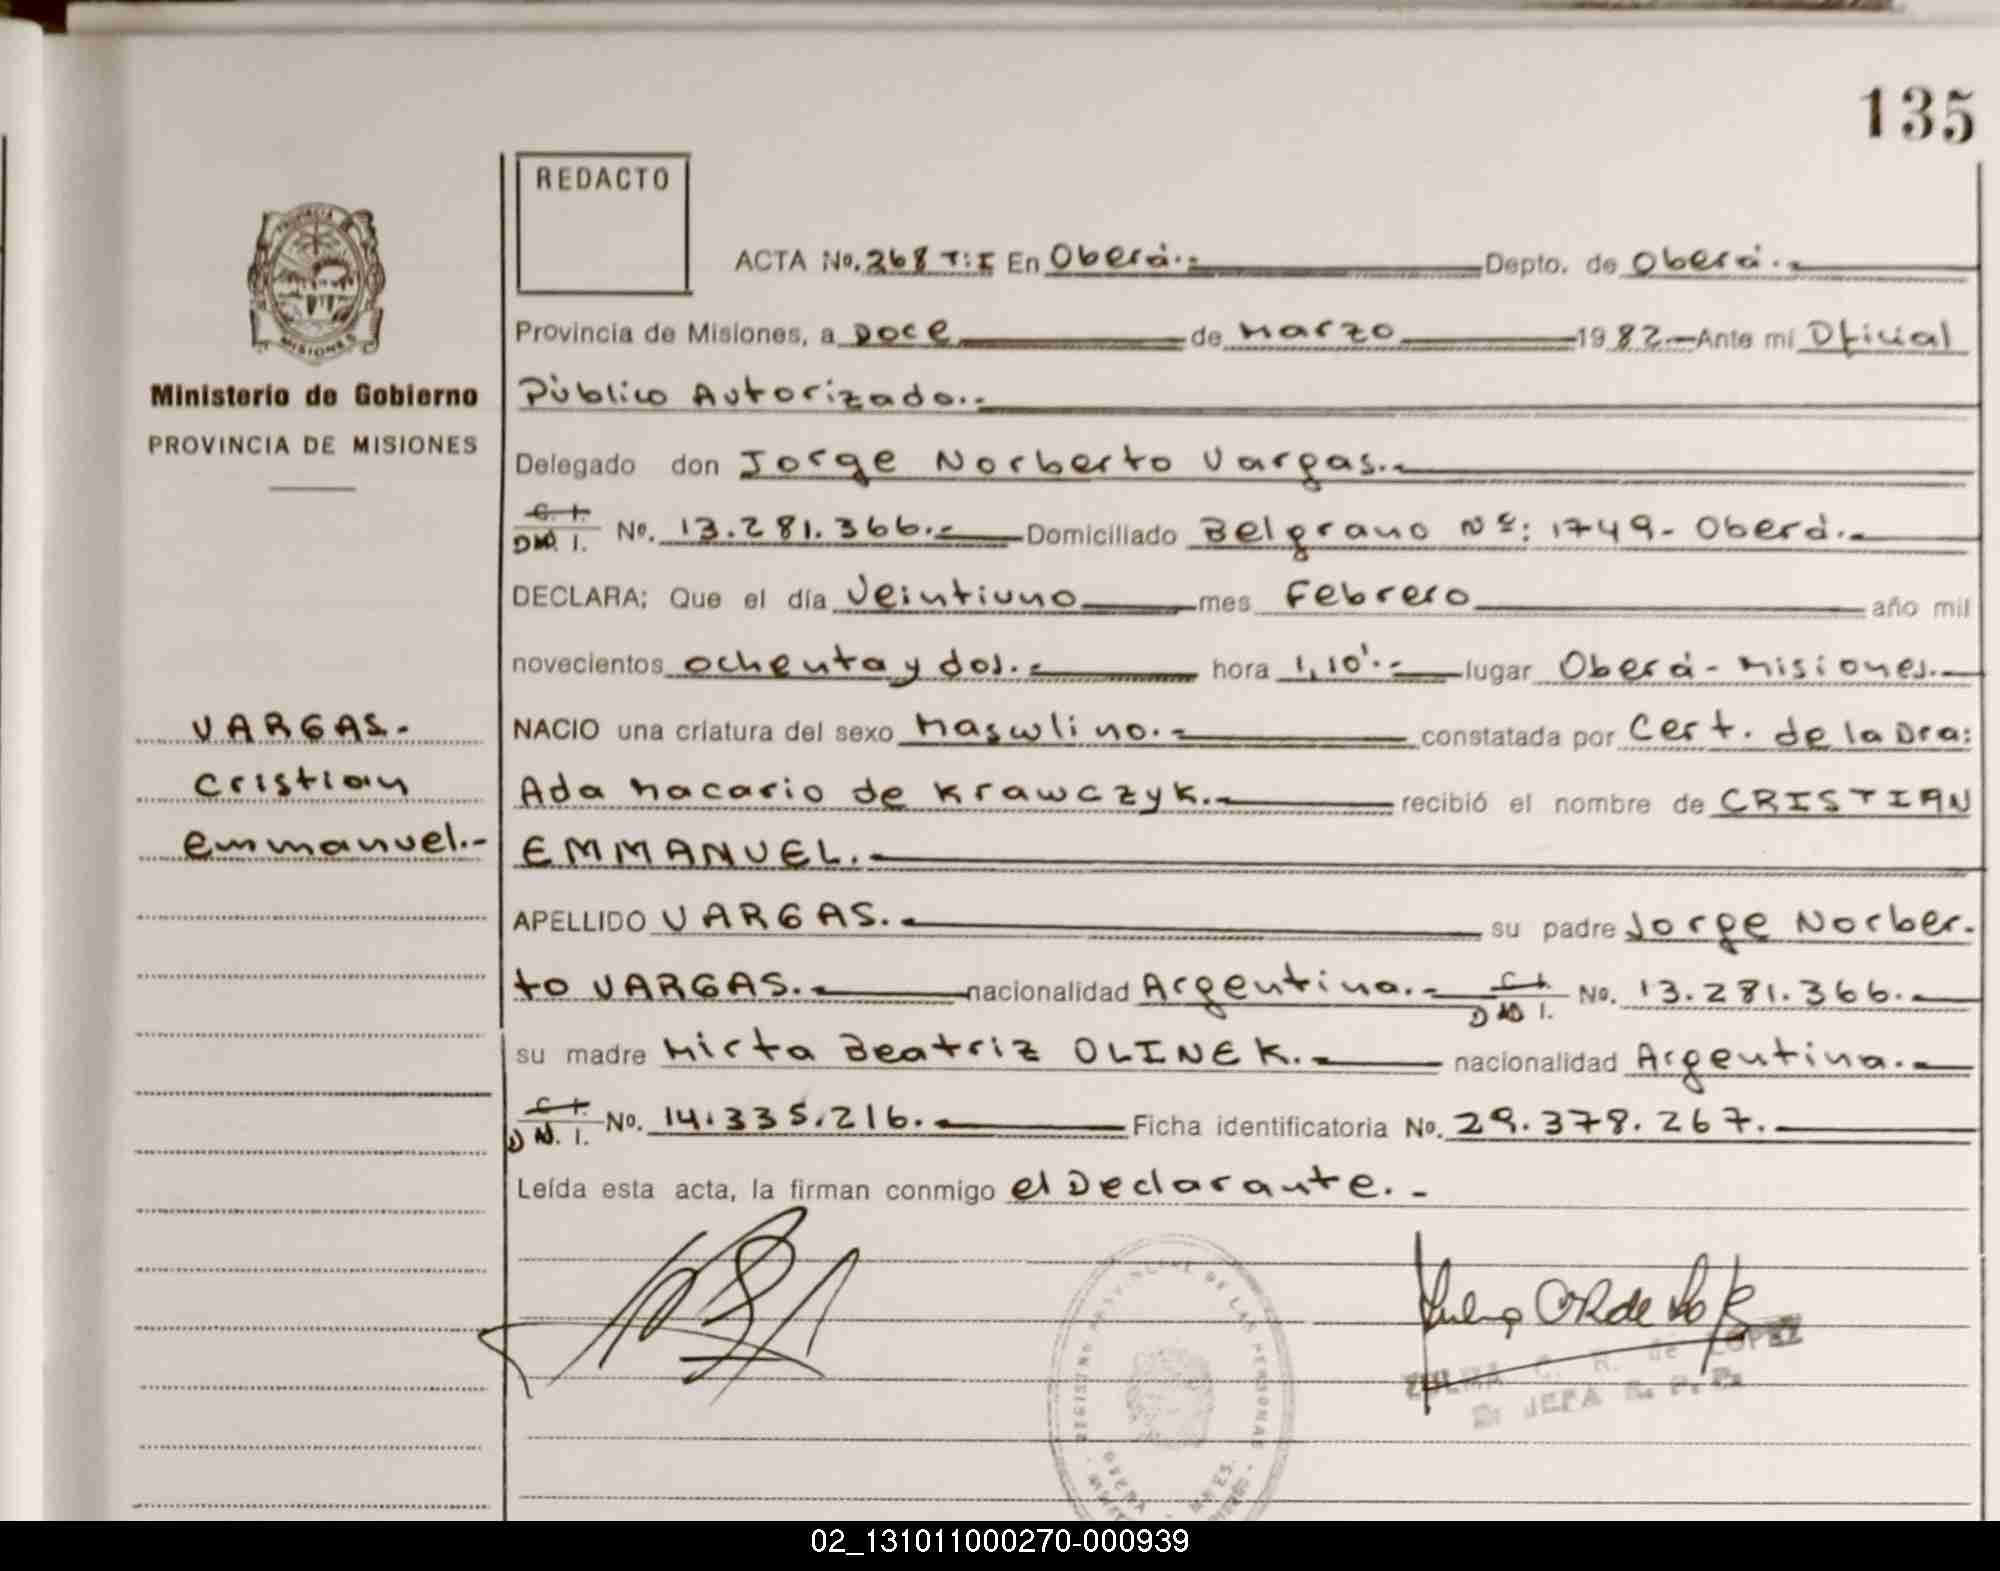 135
REDACTO
ACTA No. 268 T: I En Oberá.- Depto. de Oberá.-
Provincia de Misiones, a Doce de Marzo 1982.- Ante mí Oficial
Ministerio de Gobierno
Público Autorizado.-
PROVINCIA DE MISIONES
Delegado don Jorge Norberto Vargas.-
C. I.
D.N. I. No. 13.281.366.- Domiciliado Belgrano Nº: 1749- Oberá.-
DECLARA; Que el día Veintiuno mes Febrero año mil
novecientos ochenta y dos.- hora 1,10'.- lugar Oberá- Misiones.-
VARGAS.-
NACIO una criatura del sexo Masculino.- constatada por Cert. de la Dra:
Cristian
Ada Macario de Krawczyk.- recibió el nombre de CRISTIAN
Emmanuel.-
EMMANUEL.-
APELLIDO VARGAS.- su padre Jorge Norber-
to VARGAS.- nacionalidad Argentina.- C. I. D N I. No. 13.281.366.-
su madre Mirta Beatriz OLINEK.- nacionalidad Argentina.-
C. I.
D N. I. No. 14.335.216.- Ficha identificatoria No. 29.378.267.-
Leída esta acta, la firman conmigo el Declarante.-
REGISTRO PROVINCIAL DE LAS PERSONAS
OBERA MNES.
ZULMA C. R. de LOPEZ
JEFA R. P. P.
02_131011000270-000939